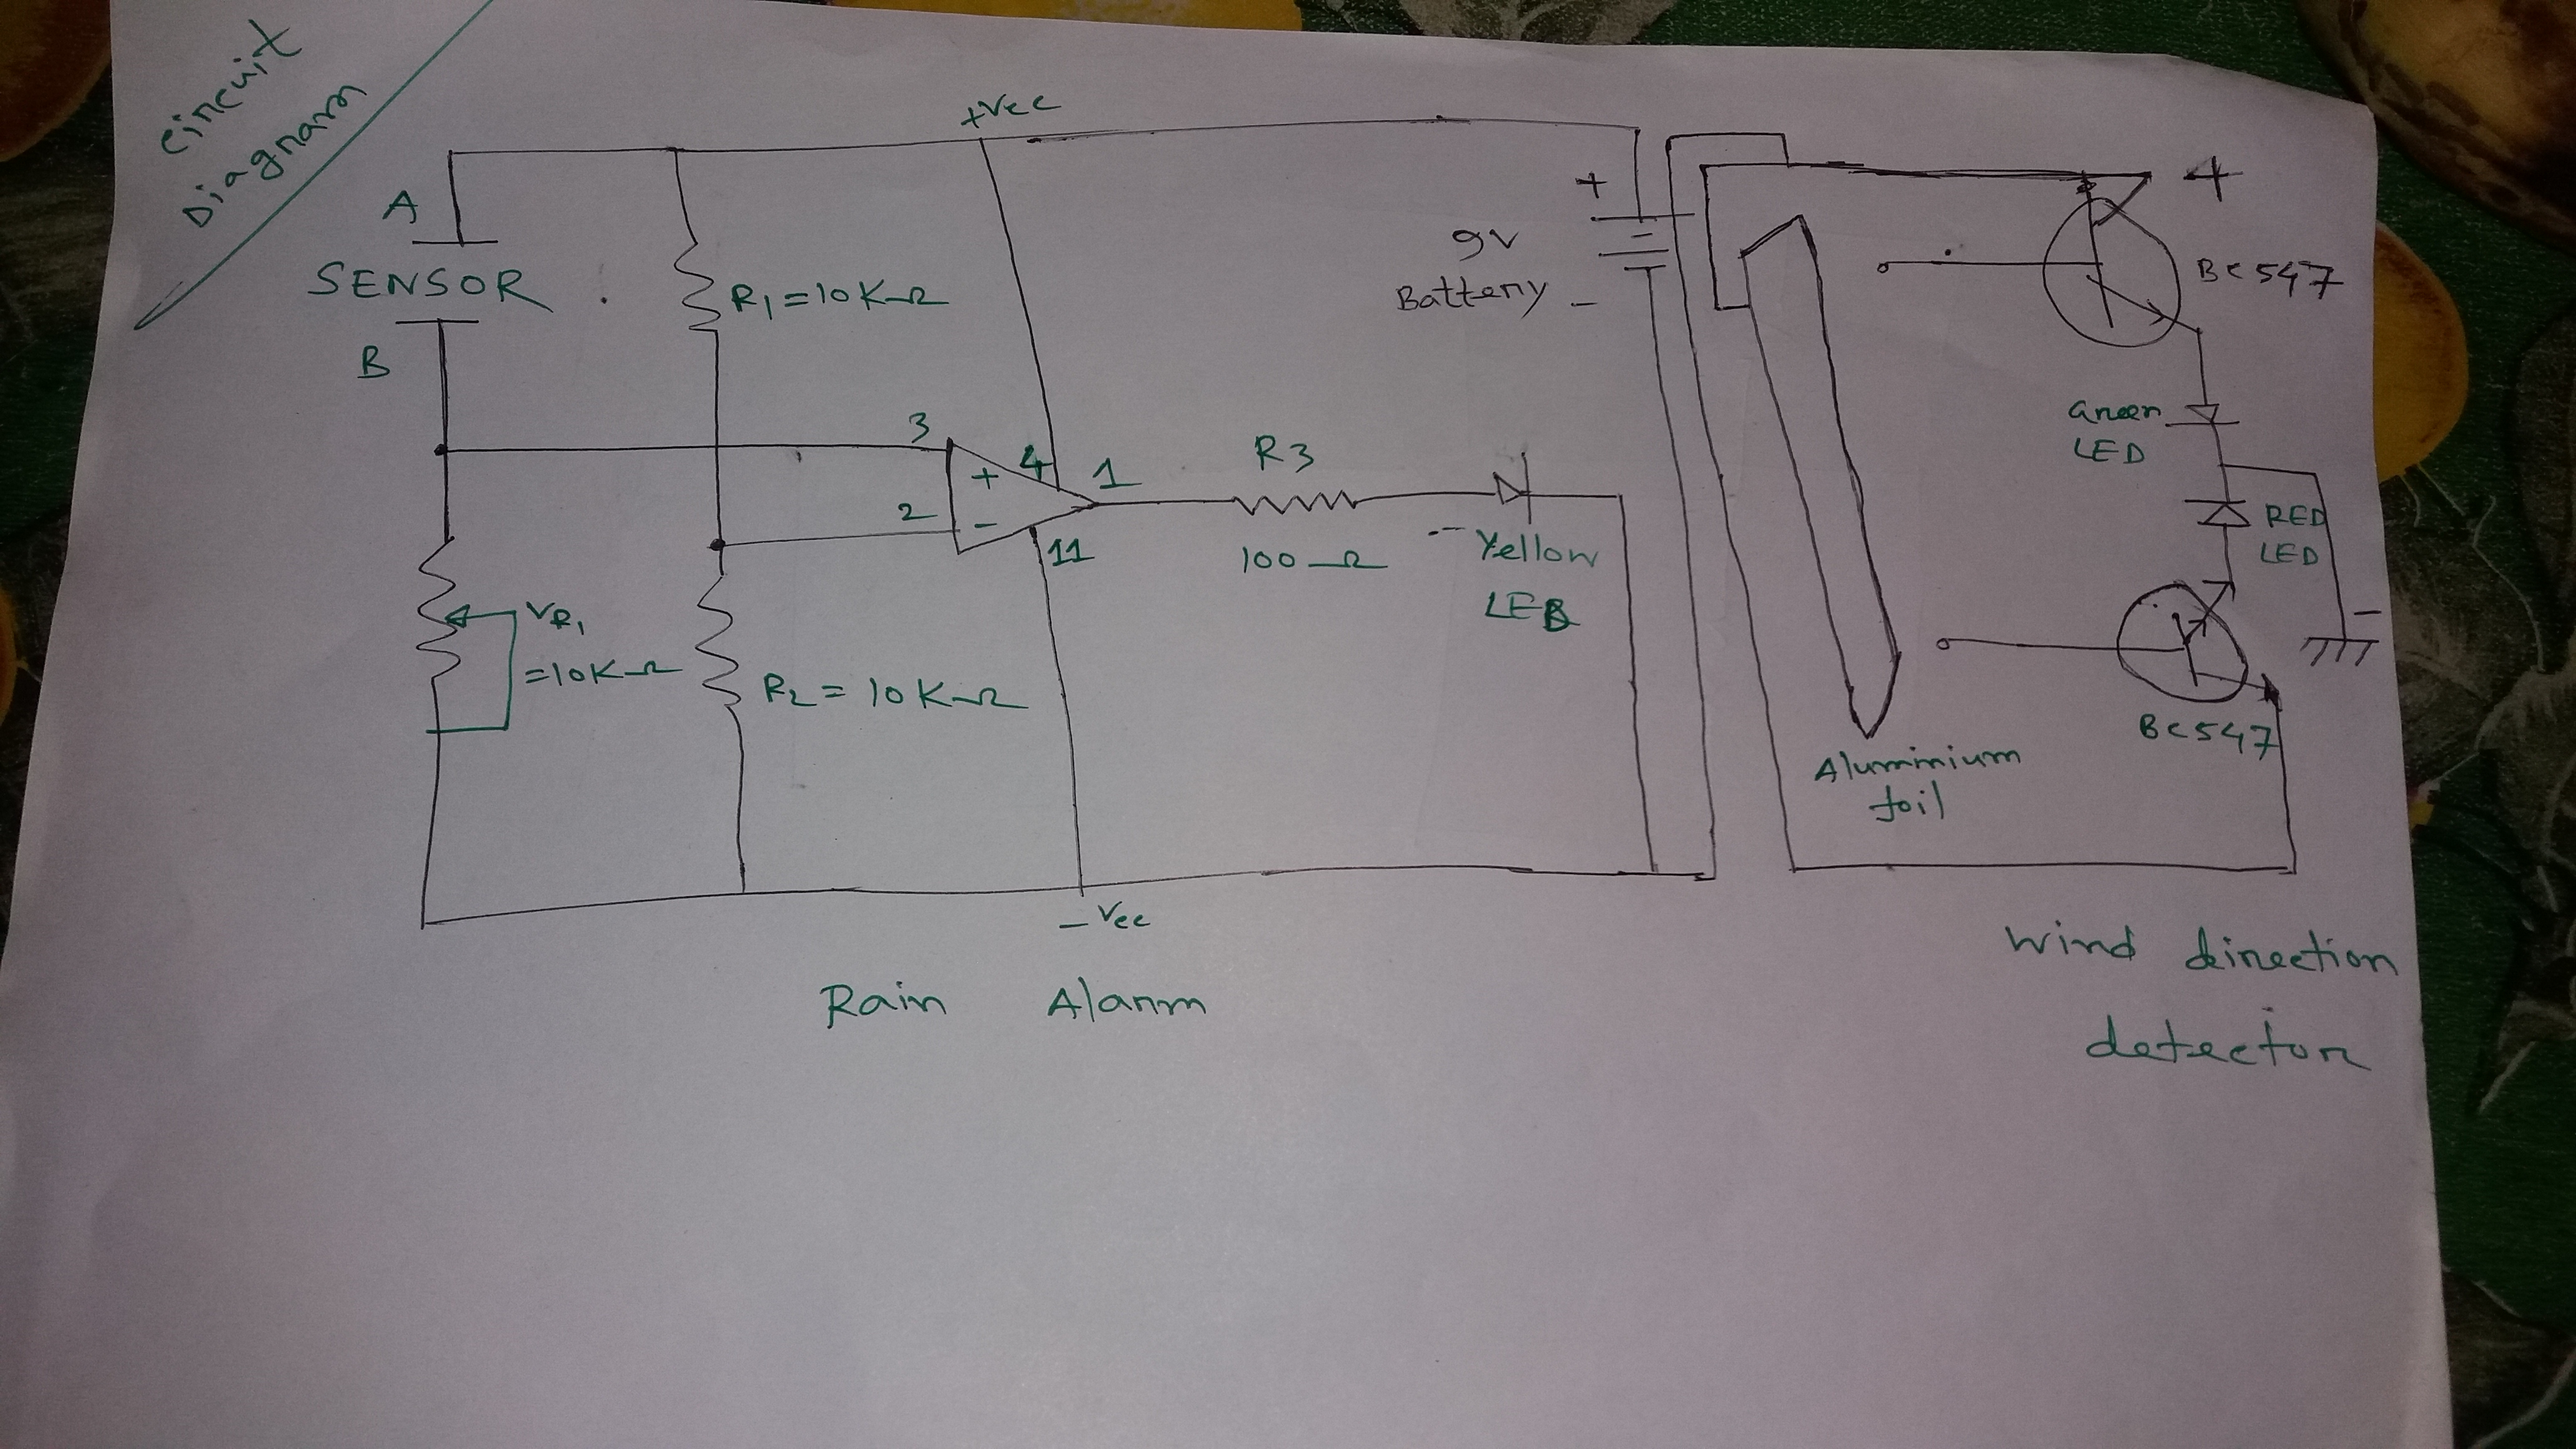 Circuit
Diagram
+Vcc
A
SENSOR
B
R1=10KΩ
3
+
4
1
2
-
11
VR1
=10KΩ
R2=10KΩ
R3
100Ω
Yellow
LED
+
9V
Battery -
-Vcc
Rain Alarm
+
BC547
Green
LED
RED
LED
-
BC547
Aluminium
foil
Wind direction
detector